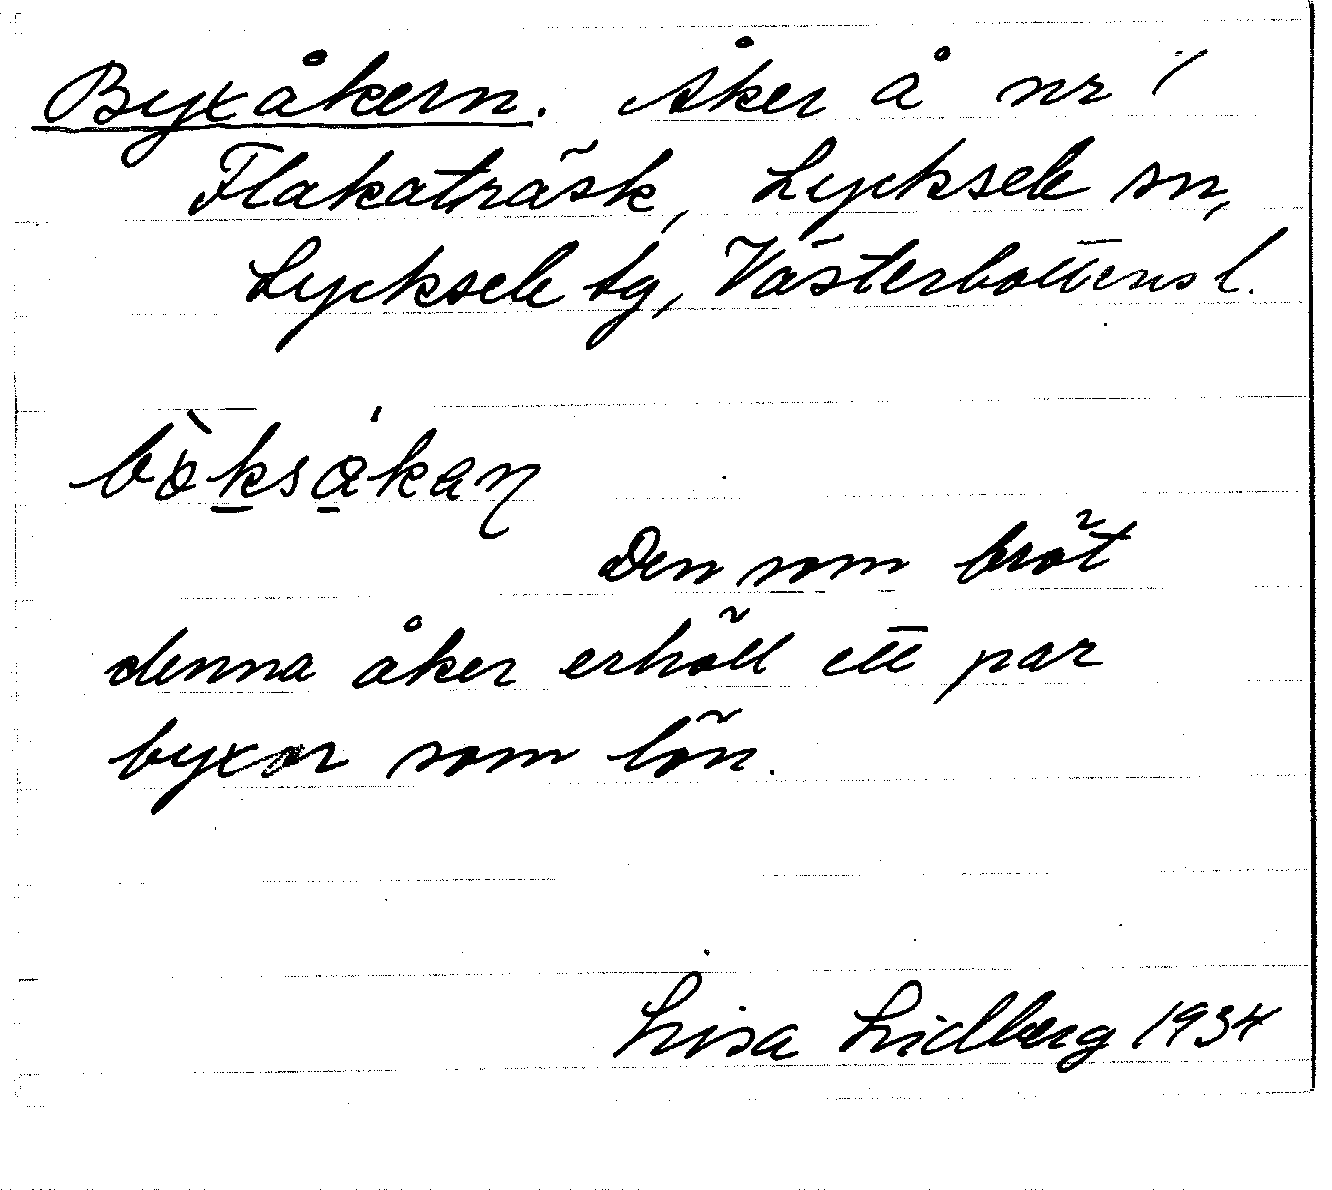 Byxåkern. Åker å nr 1
Flakaträsk, Lycksele sn,
Lycksele tg, Västerbottens l.
bo̊̀ksåkaɳ
Den som bröt
denna åker erhöll ett par
byxor som lön.
Lisa Lidberg 1934